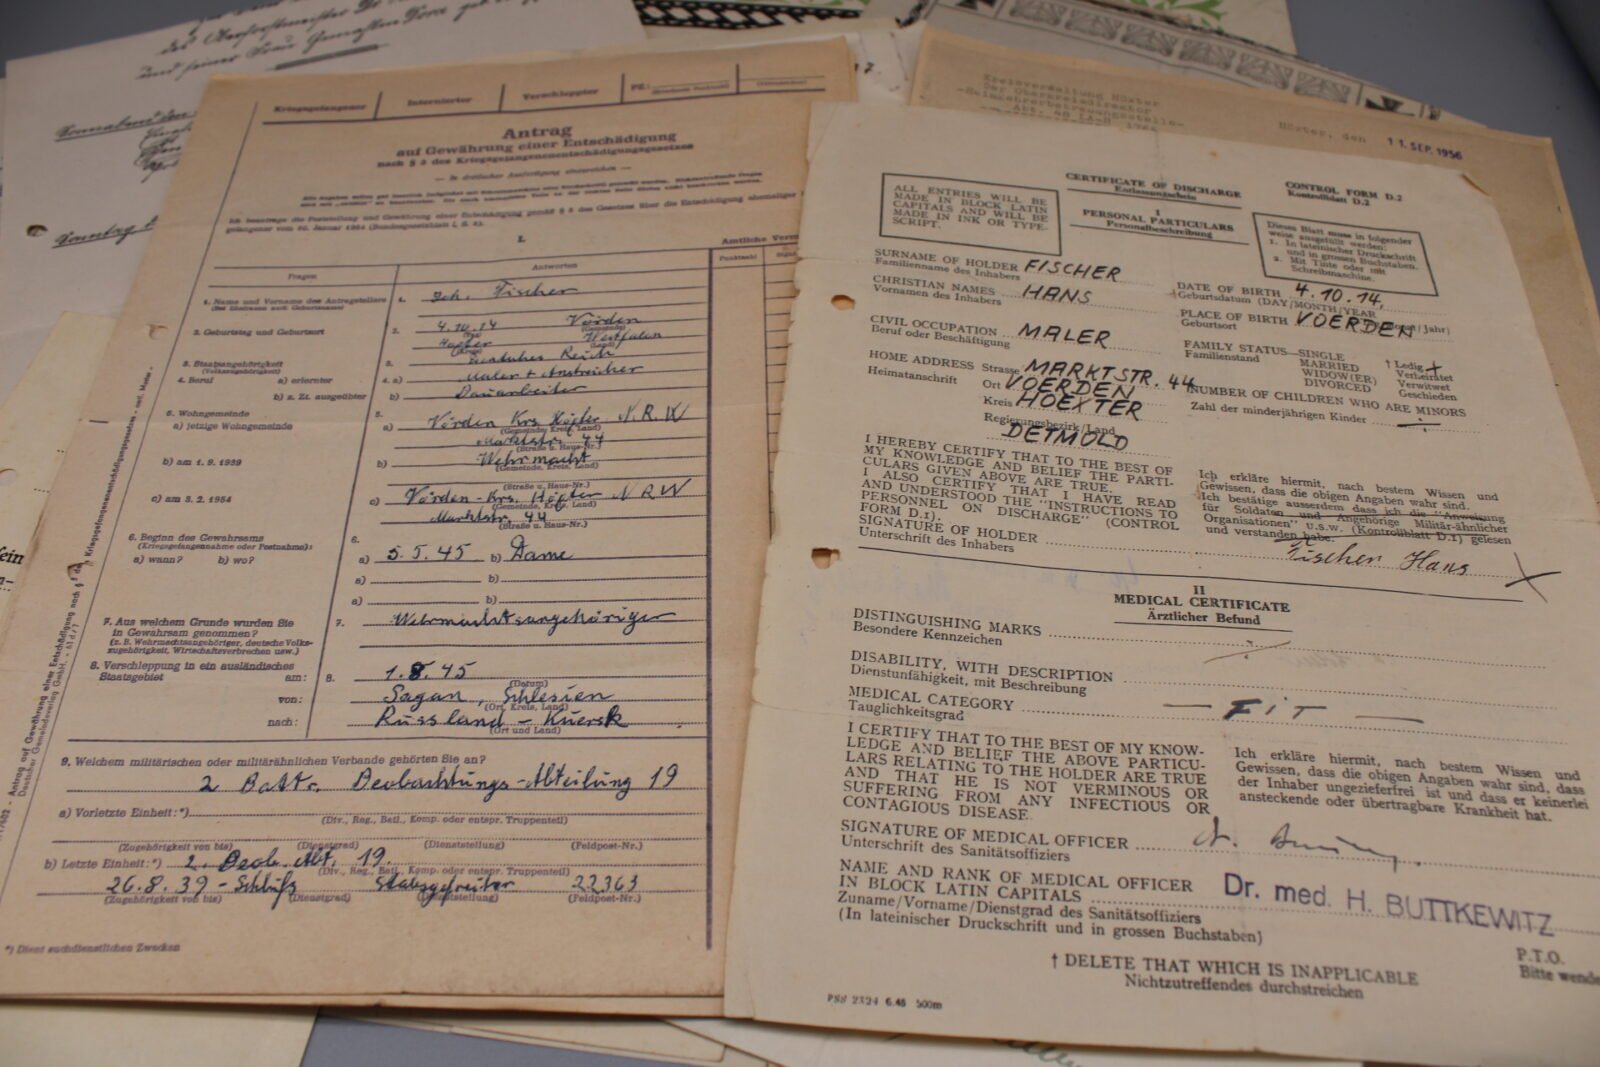 und seiner Frau
Sonntag
Kriegsgefangener
Internierter
Verschleppter
PZ.:
Antrag
auf Gewährung einer Entschädigung
nach § 3 des Kriegsgefangenenentschädigungsgesetzes
— in dreifacher Ausfertigung einzureichen —
Ich beantrage die Feststellung und Gewährung einer Entschädigung gemäß § 3 des Gesetzes über die Entschädigung ehemaliger
gefangener vom 30. Januar 1954 (Bundesgesetzbl. I, S. 5).
I.
Amtliche
Fragen
Antworten
Punktzahl
1. Name und Vorname des Antragstellers
(Bei Ehefrauen auch Geburtsname)
1. Joh. Fischer
2. Geburtstag und Geburtsort
2. 4.10.14 Vörden
(Tag) (Gemeinde)
Höxter Westfalen
(Kreis) (Land)
3. Staatsangehörigkeit
(Volkszugehörigkeit)
3. Deutsches Reich
4. Beruf a) erlernter
4. a) Maler + Anstreicher
b) z. Zt. ausgeübter
b) Bauarbeiter
5. Wohngemeinde
5.
a) jetzige Wohngemeinde
a) Vörden Krs. Höxter N.R.W
(Gemeinde, Kreis, Land)
Marktstr. 44
(Straße u. Haus-Nr.)
b) am 1. 9. 1939
b) Wehrmacht
(Gemeinde, Kreis, Land)
(Straße u. Haus-Nr.)
c) am 3. 2. 1954
c) Vörden - Krs. Höxter NRW
(Gemeinde, Kreis, Land)
Marktstr. 44
(Straße u. Haus-Nr.)
6. Beginn des Gewahrsams
(Kriegsgefangennahme oder Festnahme):
a) wann? b) wo?
6.
a) 5.5.45 b) Dame
a) b)
a) b)
7. Aus welchem Grunde wurden Sie
in Gewahrsam genommen?
(z. B. Wehrmachtsangehöriger, deutsche Volks-
zugehörigkeit, Wirtschaftsverbrechen usw.)
7. Wehrmachtsangehöriger
8. Verschleppung in ein ausländisches
Staatsgebiet am:
8. 1.8.45
(Datum)
von: Sagan, Schlesien
(Ort, Kreis, Land)
nach: Russland - Kuersk
(Ort und Land)
9. Welchem militärischen oder militärähnlichen Verbande gehörten Sie an?
2 Battr. Beobachtungs-Abteilung 19
a) Vorletzte Einheit:*)
(Div., Reg., Batl., Komp. oder entspr. Truppenteil)
(Zugehörigkeit von bis) (Dienstgrad) (Dienststellung) (Feldpost-Nr.)
b) Letzte Einheit:*) 2. Beob. Abt. 19.
(Div., Reg., Batl., Komp. oder entspr. Truppenteil)
26.8.39 - Schluß Stabsgefreiter 22363
(Zugehörigkeit von bis) (Dienstgrad) (Dienststellung) (Feldpost-Nr.)
*) Dient suchdienstlichen Zwecken
Kreisverwaltung Höxter
Der Oberkreisdirektor
-Heimkehrerbetreuungsstelle-
Höxter, den 11. SEP. 1956
ALL ENTRIES WILL BE
MADE IN BLOCK LATIN
CAPITALS AND WILL BE
MADE IN INK OR TYPE-
SCRIPT.
CERTIFICATE OF DISCHARGE
Entlassungschein
I
PERSONAL PARTICULARS
Personalbeschreibung
CONTROL FORM D.2
Kontrollblatt D.2
Dieses Blatt muss in folgender
weise ausgefüllt werden:
1. In lateinischer Druckschrift
und in grossen Buchstaben.
2. Mit Tinte oder mit
Schreibmaschine.
SURNAME OF HOLDER FISCHER
Familienname des Inhabers
CHRISTIAN NAMES HANS
Vornamen des Inhabers
CIVIL OCCUPATION MALER
Beruf oder Beschäftigung
HOME ADDRESS Strasse MARKTSTR. 44
Heimatanschrift Ort VOERDEN
Kreis HOEXTER
Regierungsbezirk/Land
DETMOLD
DATE OF BIRTH 4.10.14.
Geburtsdatum (DAY/MONTH/YEAR
Jahr)
PLACE OF BIRTH VOERDEN
Geburtsort
FAMILY STATUS—SINGLE † Ledig
Familienstand MARRIED Verheiratet
WIDOW(ER) Verwitwet
DIVORCED Geschieden
NUMBER OF CHILDREN WHO ARE MINORS
Zahl der minderjährigen Kinder
I HEREBY CERTIFY THAT TO THE BEST OF
MY KNOWLEDGE AND BELIEF THE PARTI-
CULARS GIVEN ABOVE ARE TRUE.
I ALSO CERTIFY THAT I HAVE READ
AND UNDERSTOOD THE "INSTRUCTIONS TO
PERSONNEL ON DISCHARGE" (CONTROL
FORM D.1).
SIGNATURE OF HOLDER
Unterschrift des Inhabers
Ich erkläre hiermit, nach bestem Wissen und
Gewissen, dass die obigen Angaben wahr sind.
Ich bestätige ausserdem dass ich die "Anweisung
für Soldaten und Angehörige Militär-ähnlicher
Organisationen" u.s.w. (Kontrollblatt D.1) gelesen
und verstanden habe.
Fischer Hans
II
MEDICAL CERTIFICATE
Ärztlicher Befund
DISTINGUISHING MARKS
Besondere Kennzeichen
DISABILITY, WITH DESCRIPTION
Dienstunfähigkeit, mit Beschreibung
MEDICAL CATEGORY — FIT —
Tauglichkeitsgrad
I CERTIFY THAT TO THE BEST OF MY KNOW-
LEDGE AND BELIEF THE ABOVE PARTICU-
LARS RELATING TO THE HOLDER ARE TRUE
AND THAT HE IS NOT VERMINOUS OR
SUFFERING FROM ANY INFECTIOUS OR
CONTAGIOUS DISEASE
Ich erkläre hiermit, nach bestem Wissen und
Gewissen, dass die obigen Angaben wahr sind, dass
der Inhaber ungezieferfrei ist und dass er keinerlei
ansteckende oder übertragbare Krankheit hat.
SIGNATURE OF MEDICAL OFFICER
Unterschrift des Sanitätsoffiziers
NAME AND RANK OF MEDICAL OFFICER
IN BLOCK LATIN CAPITALS
Dr. med. H. BUTTKEWITZ
Zuname/Vorname/Dienstgrad des Sanitätsoffiziers
(In lateinischer Druckschrift und in grossen Buchstaben)
P.T.O.
Bitte wende
† DELETE THAT WHICH IS INAPPLICABLE
Nichtzutreffendes durchstreichen
PSS 2324 6.45 500m